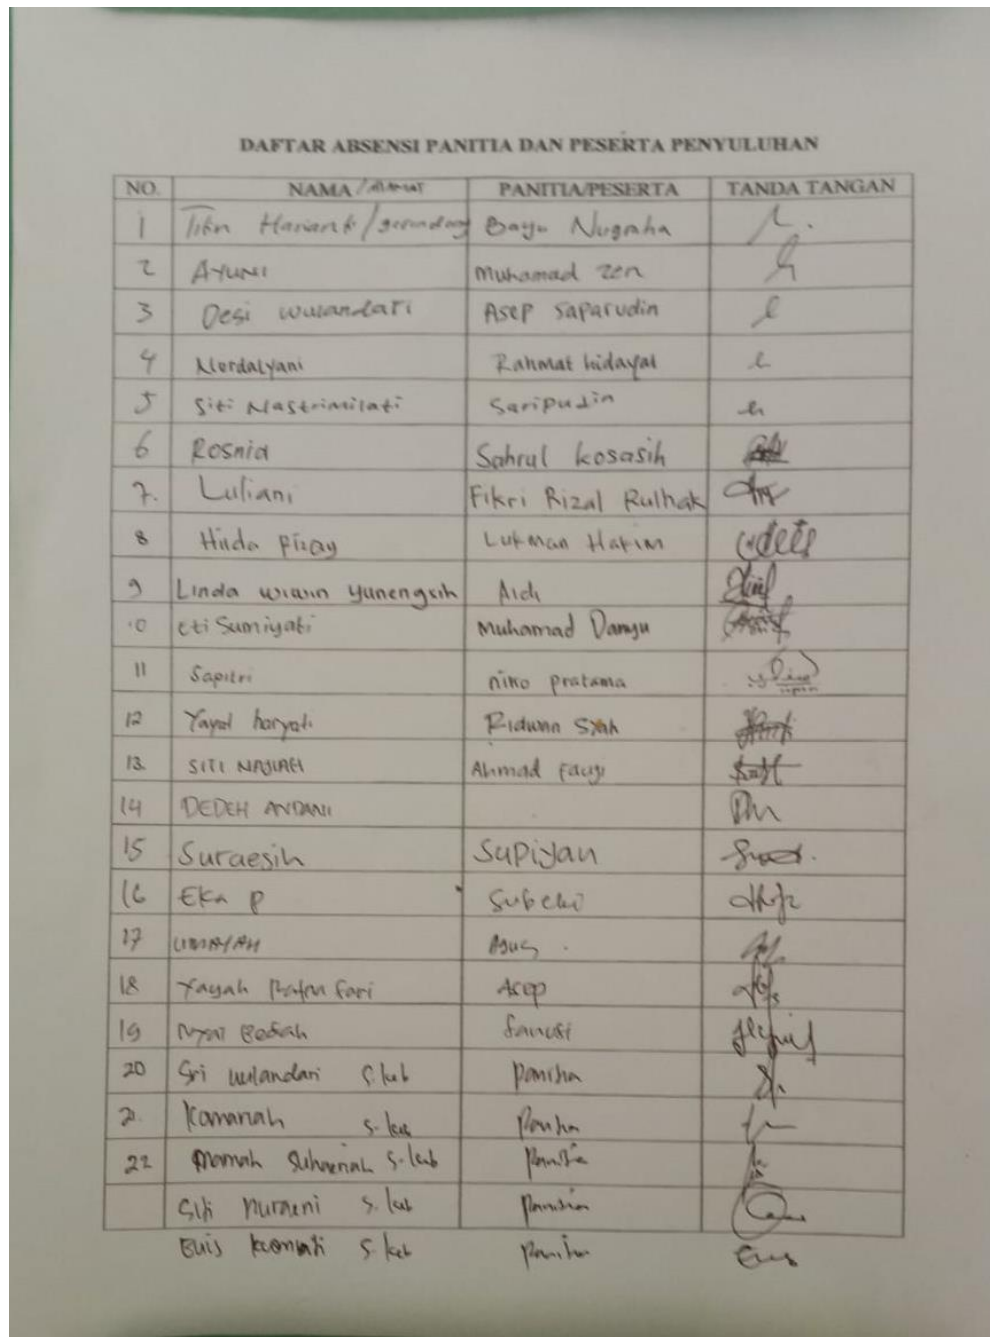 DAFTAR ABSENSI PANITIA DAN PESERTA PENYULUHAN
NO. NAMA /Alamat PANITIA/PESERTA TANDA TANGAN
1 Harianti / Bayu Nugraha
2 AYUNI Muhamad Zen
3 Desi wulandari Asep Saparudin
4 Nordalyani Rahmat hidayat
5 Siti Nastrimilati Saripudin
6 Rosnia Sahrul kosasih
7. Luliani Fikri Rizal Rulhak
8 Hilda Lukman Hakim
9 Linda wiwin yunengsih
10 eti Sumiyati Muhamad
11 Sapitri niko pratama
12 haryati Ridwan Syah
13. SITI NAJIAH Ahmad Fauzi
14 DEDEH ANDANI
15 Suraesih Supiyan
16 Eka P
17 UMAYAH Agus .
18 Yayah Sari Asep
19 Sanusi
20 Sri wulandari S.keb Panitia
21. Komariah S.keb Panitia
22 Mamah Suhaenah S.keb Panitia
Siti Nuraeni S.keb Panitia
Euis S.keb Panitia